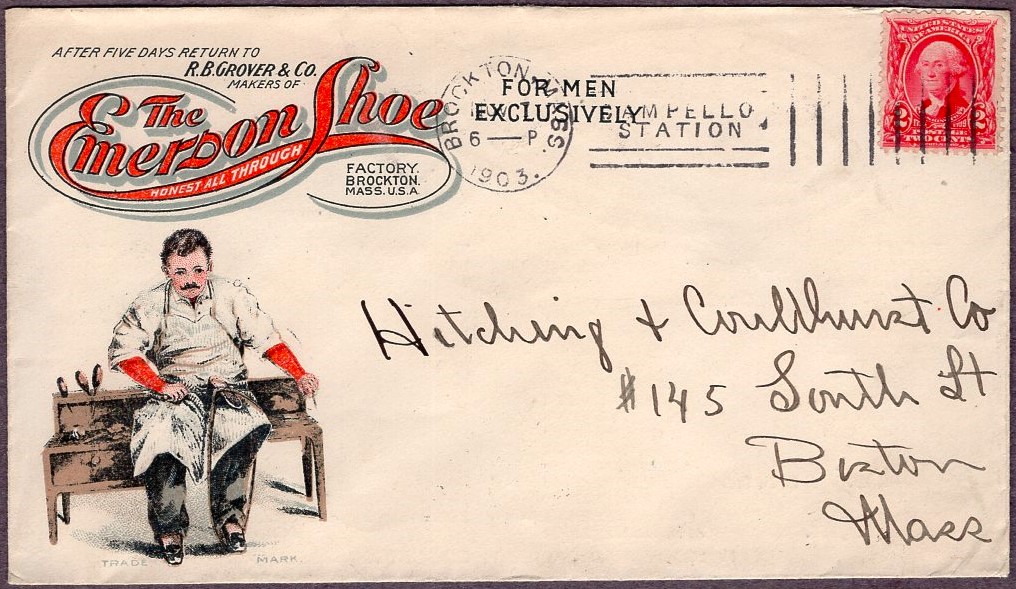 AFTER FIVE DAYS RETURN TO
R.B. GROVER & CO.
MAKERS OF
The
Emerson Shoe
HONEST ALL THROUGH
FACTORY.
BROCKTON.
MASS. U.S.A
FOR MEN
EXCLUSIVELY
BROCKTON, MASS.
6 — P.
1903.
CAMPELLO
STATION
UNITED STATES
OF AMERICA
2 2
POSTAGE
TWO CENTS
Hitching & Coulthurst Co
#145 South St
Boston
Mass
TRADE MARK.